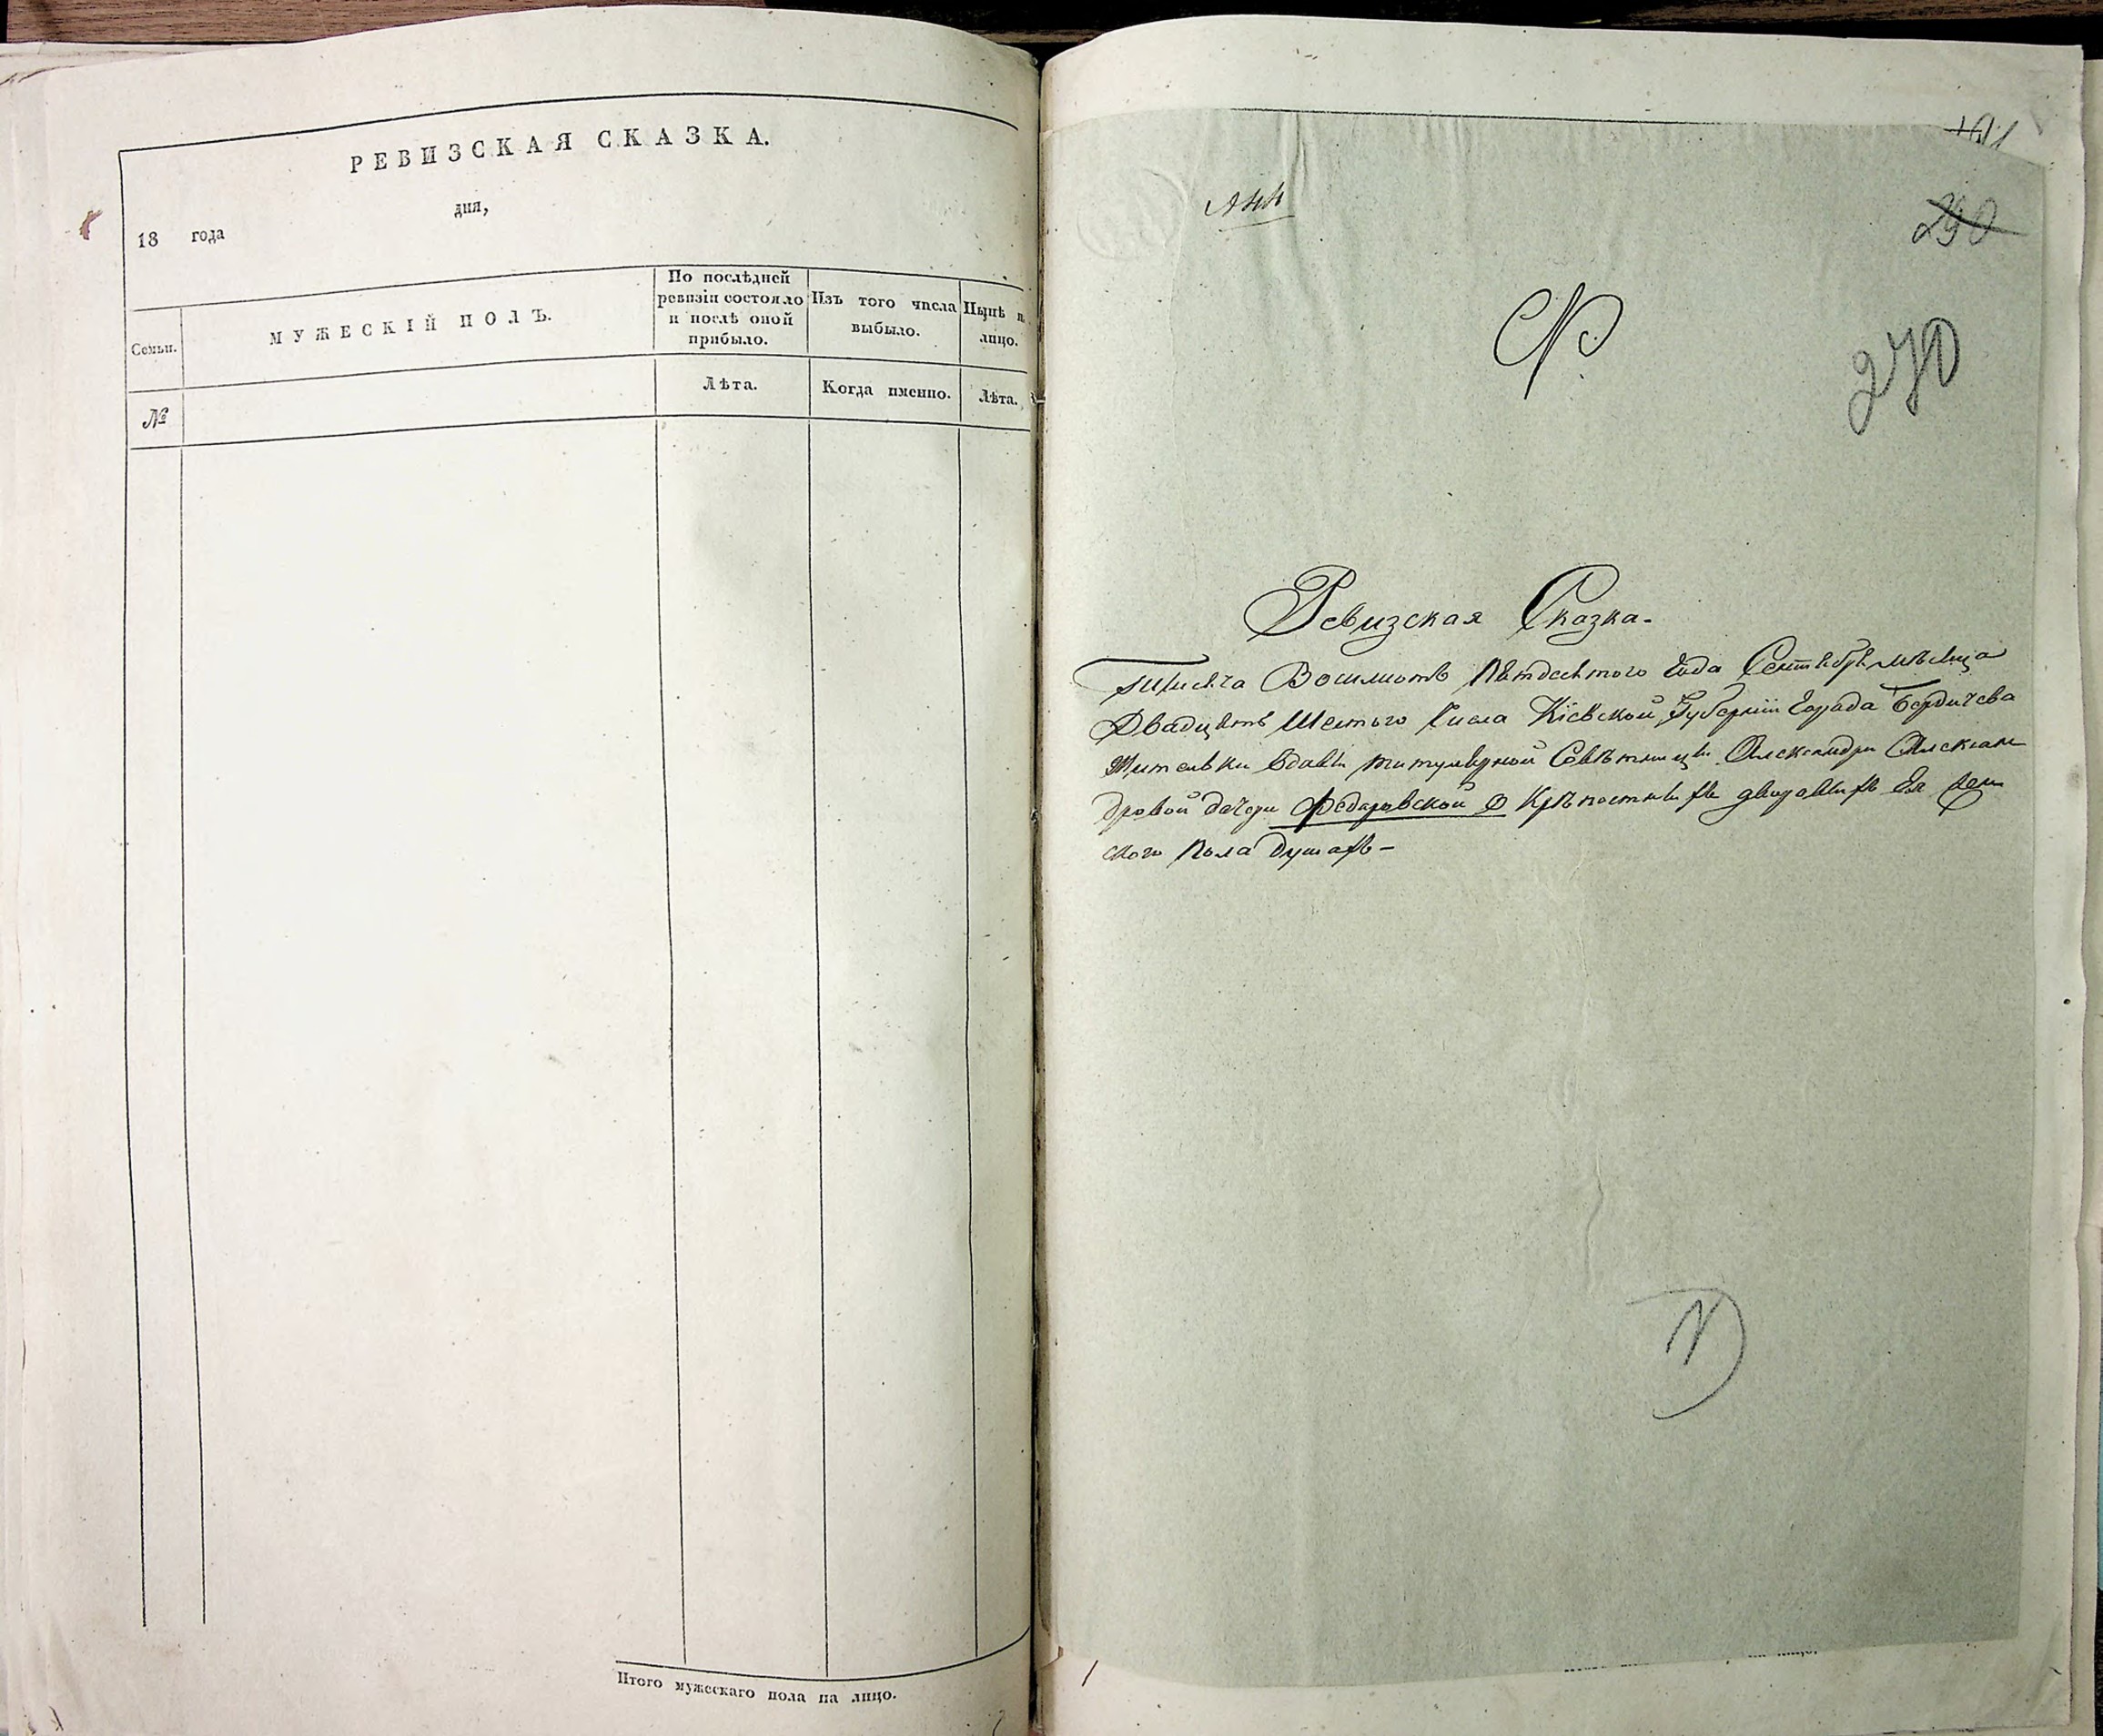 РЕВИЗСКАЯ СКАЗКА.
дня,
18 года
Семьи.
МУЖЕСКІЙ ПОЛЪ.
По послѣдней
ревизіи состояло
и послѣ оной
прибыло.
Изъ того числа
выбыло.
Нынѣ н
лицо.
№
Лѣта.
Когда именно.
Лѣта.
Итого мужескаго пола на лицо.
290
Ф.
270
Ревизская Сказка.
Тысяча Восимсотъ Пятдесятого Года Сентября мѣсяца
Двадцять Шестого Числа Кіевской Губерніи Города Бердичева
Жительки Вдавы титулярной Совѣтницы Александри Алексан
дровой дочери Федаровской о Крѣпостныхъ дворовыхъ Ея жен
ского Пола Душахъ-